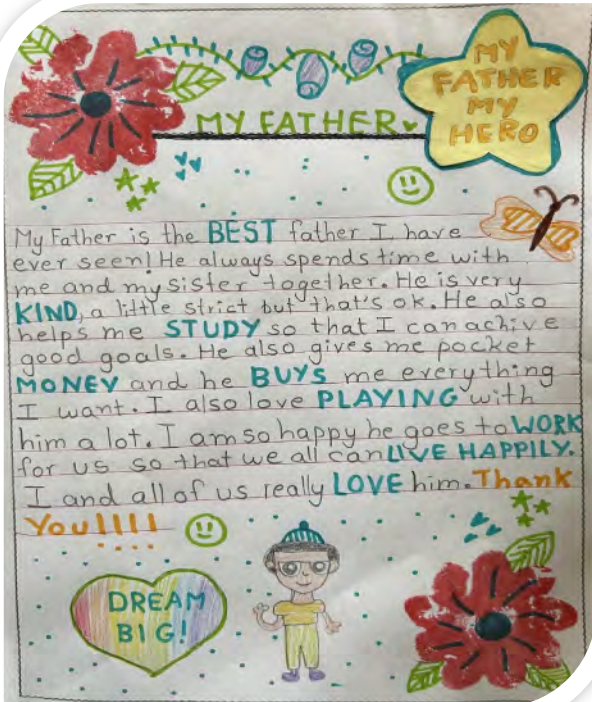 MY FATHER
MY
FATHER
MY
HERO
My Father is the BEST father I have
ever seen! He always spends time with
me and my sister together. He is very
KIND, a little strict but that's ok. He also
helps me STUDY so that I can achive
good goals. He also gives me pocket
MONEY and he BUYS me everything
I want. I also love PLAYING with
him a lot. I am so happy he goes to WORK
for us so that we all can LIVE HAPPILY.
I and all of us really LOVE him. Thank
You!!!!
DREAM
BIG!